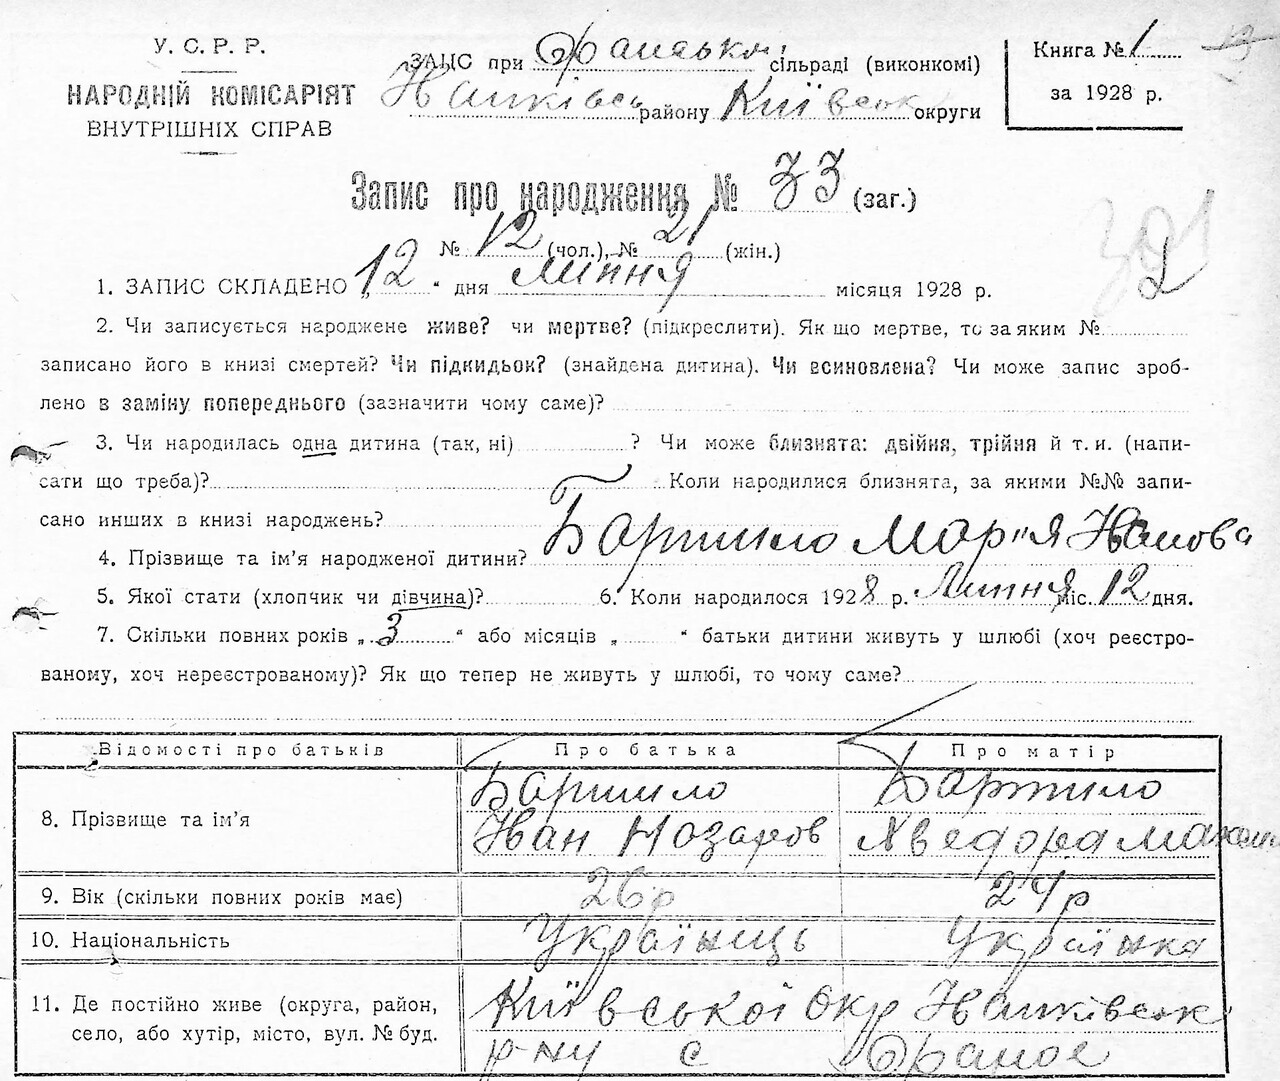 У. С. Р. Р.
НАРОДНІЙ КОМІСАРІЯТ
ВНУТРІШНІХ СПРАВ
ЗАГС при сільраді (виконкомі)
району Київськ округи
Книга № 1
за 1928 р.
Запис про народження № 33 (заг.)
№ 12 (чол.), № 21 (жін.)
1. ЗАПИС СКЛАДЕНО „12“ дня липня місяця 1928 р.
2. Чи записується народжене живе? чи мертве? (підкреслити). Як що мертве, то за яким №
записано його в книзі смертей? Чи підкидьок? (знайдена дитина). Чи всиновлена? Чи може запис зроб-
лено в заміну попереднього (зазначити чому саме)?
3. Чи народилась одна дитина (так, ні) ? Чи може близнята: двійня, трійня й т. и. (напи-
сати що треба)? Коли народилися близнята, за якими №№ запи-
сано инших в книзі народжень?
4. Прізвище та ім’я народженої дитини? Мар"я Іванова
5. Якої стати (хлопчик чи дівчина)? 6. Коли народилося 1928 р. Липня міс. 12 дня.
7. Скільки повних років „ 3 “ або місяців „ “ батьки дитини живуть у шлюбі (хоч реєстро-
ваному, хоч нереєстрованому)? Як що тепер не живуть у шлюбі, то чому саме?
Відомості про батьків Про батька Про матір
8. Прізвище та ім’я
Іван Назаров
9. Вік (скільки повних років має) 26р 24р
10. Національність Українець Українка
11. Де постійно живе (округа, район,
село, або хутір, місто, вул. № буд.
Київської Окр
р-ну с